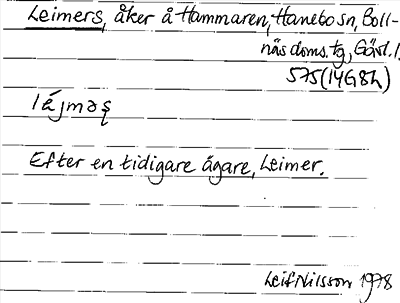 Leimers, åker å Hammaren, Hanebo sn, Boll-
näs doms. tg, Gävl. l.
575(14G8h)
lájməʂ
Efter en tidigare ägare, Leimer.
Leif Nilsson 1978